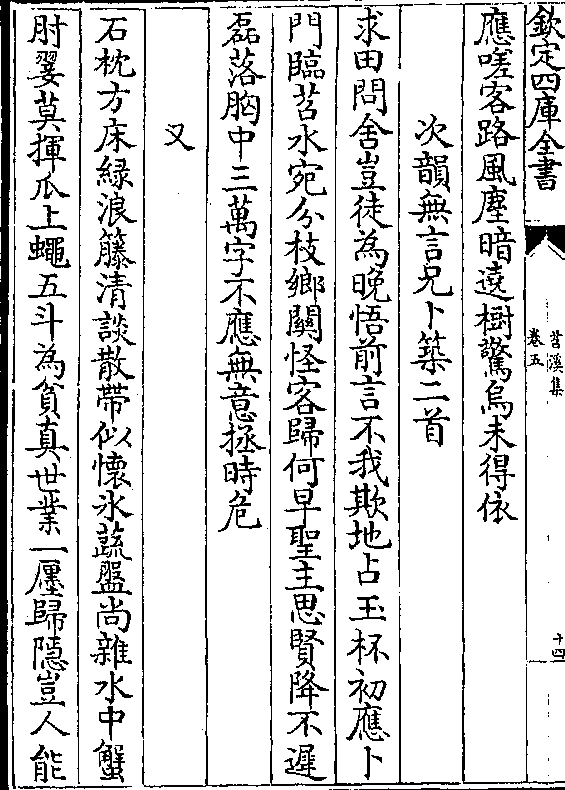 欽定四庫全書
苕溪集
卷五
十四
應嗟客路風塵暗遶樹驚烏未得依
次韻無言兄卜築二首
求田問舍豈徒為晚悟前言不我欺地占玉杯初應卜
門臨苕水宛分枝鄉關怪客歸何早聖主思賢降不遲
磊落胸中三萬字不應無意拯時危
又
石枕方床緑浪籐清談散帶似懷氷蔬盤尚雜水中蟹
肘翣莫揮瓜上蠅五斗為貧真世業一廛歸隱豈人能